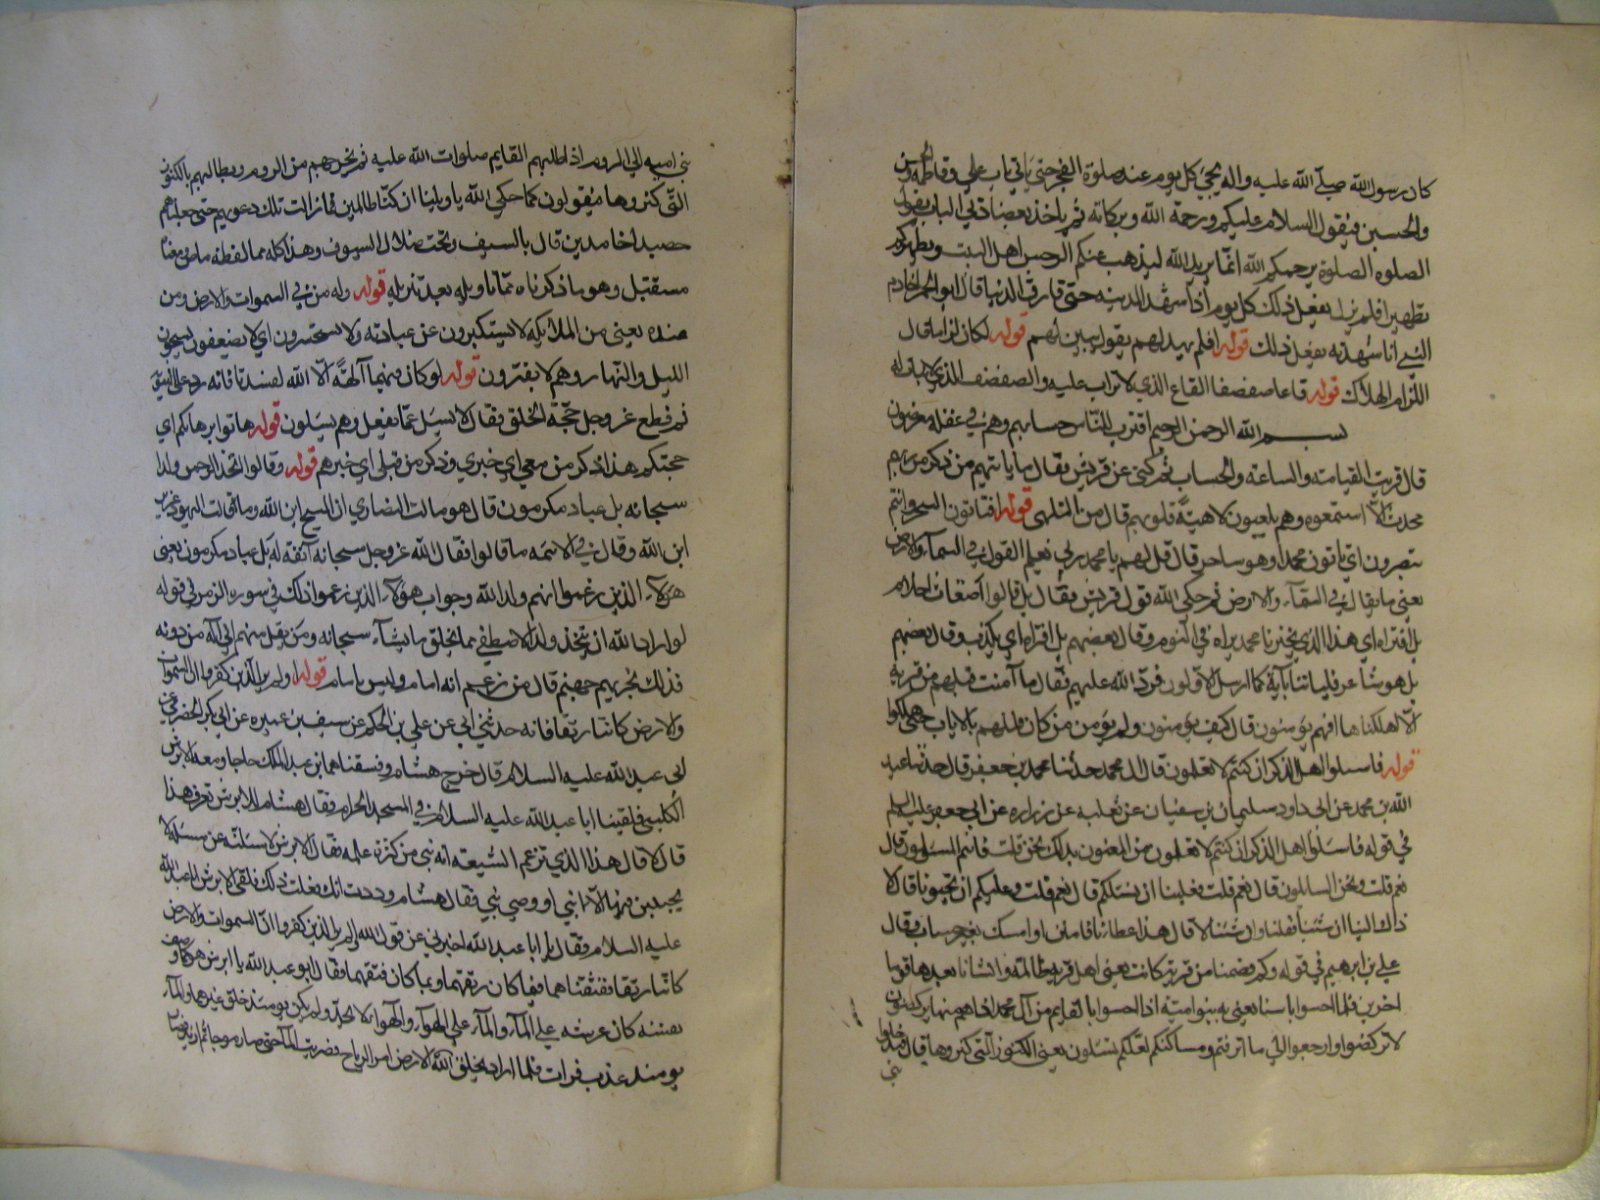 كان رسول الله صلّى الله عليه واله يجيئ كل يوم عند صلوة الفجر حتى ياتي باب علي وفاطمه والحسن
والحسين فيقول السلام عليكم ورحمة الله وبركاته ثم ياخذ بعضادتي الباب يقول
الصلوه الصلوة يرحمكم الله انما يريد الله ليذهب عنكم الرجس اهل البيت ويطهركم
تطهيرا فلم يزل يفعل ذلك كل يوم اذا شهد المدينه حتى فارق الدنيا قال ابو الحمرا خادم
النبي انا شهدته يفعل ذلك قوله افلم يهد لهم يقول يبين لهم قوله لكان لزاما قال
اللزام الهلاك قوله قاعا صفصفا القاع الذي لا تراب عليه والصفصف الذي لا نبات له
بسم الله الرحمن الرحيم اقترب للناس حسابهم وهم في غفله معرضون
قال قربت القيامة والساعة والحساب ثم كنى عن قريش فقال ما ياتيهم من ذكر من ربهم
محدث الا استمعوه وهم يلعبون لاهية قلوبهم قال من التلهى قوله افتاتون السحر وانتم
تبصرون اي تاتون محمدا وهو ساحر قال قل لهم يا محمد ربي يعلم القول في السمآء والارض
يعني ما يقال في السمآء والارض ثم حكى الله قول قريش فقال بل قالوا اضغاث احلام
بل افتراه اي هذا الذي يخبرنا محمد يراه في النوم وقال بعضهم بل افتراه اي يكذب وقال بعضهم
بل هو شاعر فلياتنا بآية كما ارسل الاولون فردّ الله عليهم فقال ما آمنت قبلهم من قرية
الّا اهلكناها افهم يؤمنون قال كيف يؤمنون ولم يؤمن من كان قبلهم بالايات حتى هلكوا
قوله فاسئلوا اهل الذكر ان كنتم لا تعلمون قال محمد حدثنا محمد بن جعفر قال حدثنا عبد
الله بن محمد عن ابي داود سليمان بن سفيان عن ثعلبه عن زراره عن ابي جعفر عليه السلم
في قوله فاسئلوا اهل الذكر ان كنتم لا تعلمون من المعنون بذلك نحن قلت فانتم المسئولون قال
نعم قلت ونحن السايلون قال نعم قلت فعلينا ان نسئلكم قال نعم قلت وعليكم ان تجيبونا قال لا
ذاك الينا ان شئنا فعلنا وان شئنا لا قال هذا عطاؤنا فامنن او امسك بغير حساب وقال
علي بن ابرهيم في قوله وكم قصمنا من قرية كانت يعني اهل قرية ظالمة وانشانا بعدها قوما
اخرين فلما احسوا باسنا يعني به بنو امية اذا احسوا بالقايم من آل محمد اذا هم منها يركضون
لا تركضوا وارجعوا الى ما اترفتم ومساكنكم لعلكم تسئلون يعني الكنوز التي كنزوها قال فيدخلوا
بني
بني اميه الى الروم اذا طلبهم القايم صلوات الله عليه ثم يخرجهم من الروم ويطالبهم بالكنوز
التي كنزوها فيقولون كما حكى الله يا ويلنا ان كنا ظالمين فما زالت تلك دعويهم حتى جعلناهم
حصيدا خامدين قال بالسيف وتحت ضلال السيوف وهذا كله مما لفظه ماض ومعناه
مستقبل وهو ما ذكرناه مما تاويله بعد تنزيله قوله وله من في السموات والارض ومن
عنده يعني من الملائكة لا يستكبرون عن عبادته ولا يستحسرون اي لا يضعفون يسبحون
الليل والنهار وهم لا يفترون قوله لو كان فيهما آلهة الا الله لفسدتا فانه رد على الثنوية
ثم قطع عز وجل حجة الخلق فقال لا يسئل عمّا يفعل وهم يسئلون قوله هاتوا برهانكم اي
حجتكم هذا ذكر من معي اي خبري وذكر من قبلي اي خبرهم قوله وقالوا اتخذ الرحمن ولدا
سبحانه بل عباد مكرمون قال هو ما قالت النصارى ان المسيح ابن الله وما قالت اليهود عزير
ابن الله وقال في الائمه ما قالوا فقال الله عز وجل سبحانه آنفة له بل عباد مكرمون يعني
هؤلآء الذين زعموا انهم ولد الله وجواب هؤلآء الذين زعموا ذلك في سوره الزمر في قوله
لو اراد الله ان يتخذ ولدا لاصطفى مما يخلق ما يشآء سبحانه ومن يقل منهم اني اله من دونه
فذلك نجزيهم جهنم قال من زعم انه امام وليس بامام قوله اولم ير الذين كفروا ان السموات
والارض كانتا رتقا فانه حدثني ابي عن علي بن الحكم عن سيف بن عميره عن ابي بكر الحضرمي عن
ابي عبد الله عليه السلام قال خرج هشام بن عبد الملك حاجا ومعه الابرش
الكلبي فلقينا ابا عبد الله عليه السلام في المسجد الحرام فقال هشام للابرش تعرف هذا
قال لا قال هذا الذي تزعم الشيعة انه نبي من كثرة علمه فقال الابرش لاسئلنه عن مسئله لا
يجيبني فيها الا نبي او وصي نبي فقال هشام وددت انك فعلت ذلك فلقى الابرش ابا عبد الله
عليه السلام فقال يا ابا عبد الله اخبرني عن قول الله اولم ير الذين كفروا انّ السموات والارض
كانتا رتقا ففتقناهما فبما كان رتقهما وبما كان فتقهما فقال ابو عبد الله يا ابرش هو كما وصف
نفسه كان عرشه على المآء والمآء على الهوآء والهوآء لا يحدّ ولم يكن يومئذ خلق غيرهما والمآء
يومئذ عذب فرات فلما اراد يخلق الله الارض امر الرياح فضربت المآء حتى صار موجا ثم ازبد